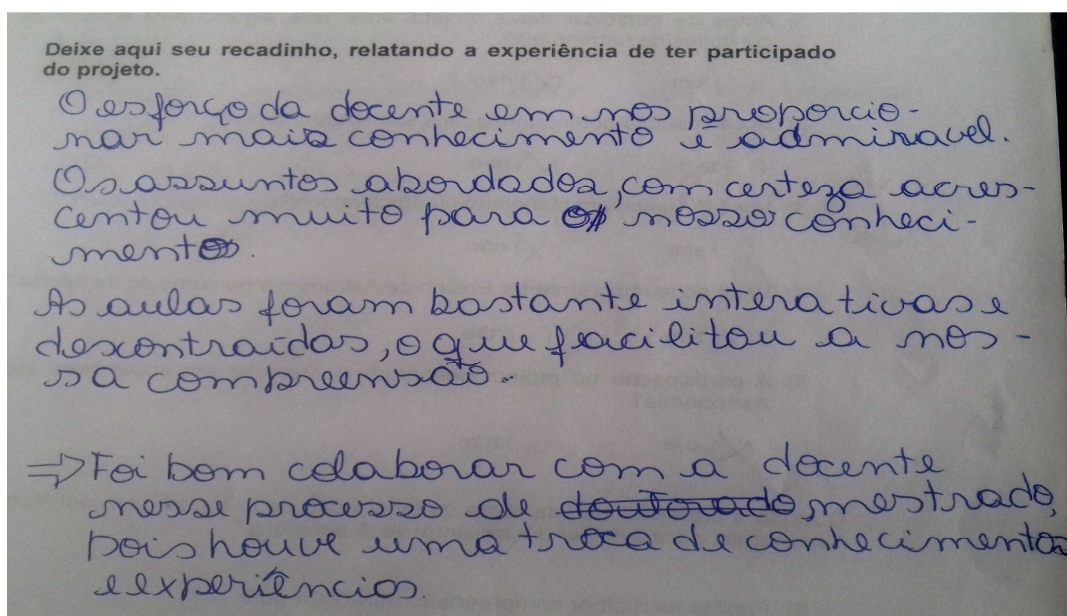 Deixe aqui seu recadinho, relatando a experiência de ter participado
do projeto.
O esforço da docente em nos proporcio-
nar mais conhecimento é admiravel.
Os assuntos abordados, com certeza acres-
centou muito para o nosso conheci-
mento.
As aulas foram bastante interativas e
descontraídas, o que facilitou a nos-
sa compreensão.
⇒ Foi bom colaborar com a docente
nesse processo de doutorado mestrado,
pois houve uma troca de conhecimentos
e experiências.